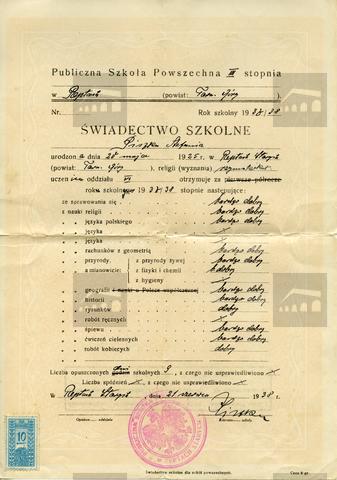 Publiczna Szkoła Powszechna III stopnia
w Reptach (powiat: Tarn. Góry ).
Nr. Rok szkolny 1937/38
ŚWIADECTWO SZKOLNE
Stefania
urodzona dnia 28 maja 1925 r. w Reptach Starych
(powiat: Tarn. Góry ), religii (wyznania) rzymskokat.
uczen oddziału VI otrzymuje za pierwsze półrocze
roku szkolnego 1937/38 stopnie następujące:
ze sprawowania się bardzo dobry
z nauki religii bardzo dobry
„ „ języka polskiego bardzo dobry
„ „ języka
„ „ języka
„ „ rachunków z geometrią bardzo dobry
„ „ przyrody, z przyrody żywej dobry
„ „ a mianowicie: z fizyki i chemii dobry
z hygieny
„ „ geografii i nauki o Polsce współczesnej bardzo dobry
„ „ historii bardzo dobry
„ „ rysunków dobry
„ „ robót ręcznych
„ „ śpiewu bardzo dobry
„ „ ćwiczeń cielesnych bardzo dobry
„ „ robót kobiecych dobry
Liczba opuszczonych dni szkolnych 9, z czego nie usprawiedliwiono
Liczba spóźnień, z czego nie usprawiedliwiono
W Reptach Starych, dnia 21 czerwca 1938 r.
10
Opiekun oddziału Kierownik szkoły
Świadectwo szkolne dla szkół powszechnych.
Cena 8 gr.